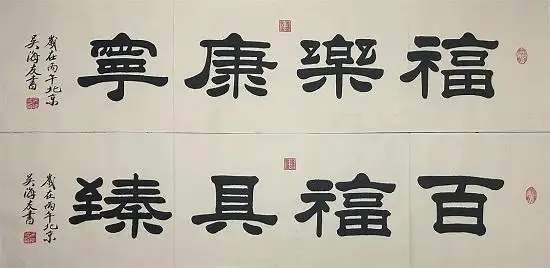 福樂康寧
歲在丙午北京
吴海友書
百福具臻
歲在丙午北京
吴海友書